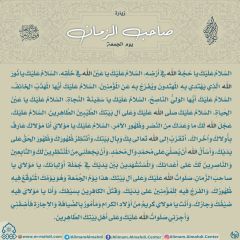 زيارة
صاحب الزمان
يوم الجمعة
السلام عليك يا حجة الله في أرضه، السلام عليك يا عين الله في خلقه، السلام عليك يا نور
الله الذي يهتدي به المهتدون ويفرج به عن المؤمنين، السلام عليك أيها المهذب الخائف،
السلام عليك أيها الولي الناصح، السلام عليك يا سفينة النجاة، السلام عليك يا عين
الحياة، السلام عليك صلى الله عليك وعلى آل بيتك الطيبين الطاهرين، السلام عليك
عجل الله لك ما وعدك من النصر وظهور الأمر، السلام عليك يا مولاي أنا مولاك عارف
بأولاك وأخراك، أتقرب إلى الله تعالى بك وبآل بيتك، وأنتظر ظهورك وظهور الحق على
يديك، وأسأل الله أن يصلي على محمد وآل محمد، وأن يجعلني من المنتظرين لك والتابعين
والناصرين لك على أعدائك، والمستشهدين بين يديك في جملة أوليائك، يا مولاي يا
صاحب الزمان صلوات الله عليك وعلى آل بيتك، هذا يوم الجمعة وهو يومك المتوقع فيه
ظهورك، والفرج فيه للمؤمنين على يديك، وقتل الكافرين بسيفك، وأنا يا مولاي فيه
ضيفك وجارك، وأنت يا مولاي كريم من أولاد الكرام ومأمور بالضيافة والإجارة فأضفني
وأجرني صلوات الله عليك وعلى أهل بيتك الطاهرين.
Alimam.Almahdi.Center